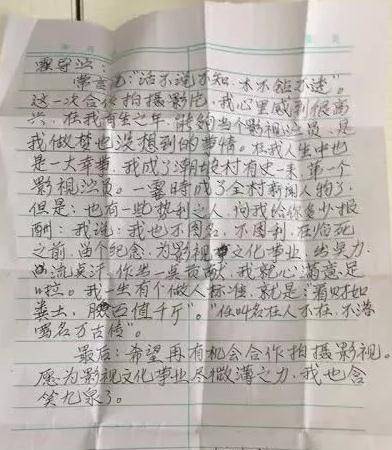 导
常言说:"话不说不知,木不钻不透"。
这一次合作拍摄影片,我心里感到很高
兴,在我有生之年,能够当个影视演员,是
我做梦也没想到的事情。在我人生中也
是一大幸事,我成了潮村有史一来,第一个
影视演员。一霎時成了全村新闻人物了,
但是:也有一些势利之人,问我给你多少报
酬:我说:我也不图名,不图利,在临死
之前,留个纪念,为影视文化事业,出力
流点汁,作出一点贡献,我就心满意足
啦。我一生有个做人标准,就是:"看财如
粪土,脸面值千斤"。"但叫名在人不在,不落
骂名万古传"。
最后:希望再有机会合作拍摄影视。
愿为影视文化事业尽微薄之力,我也含
笑九泉了。